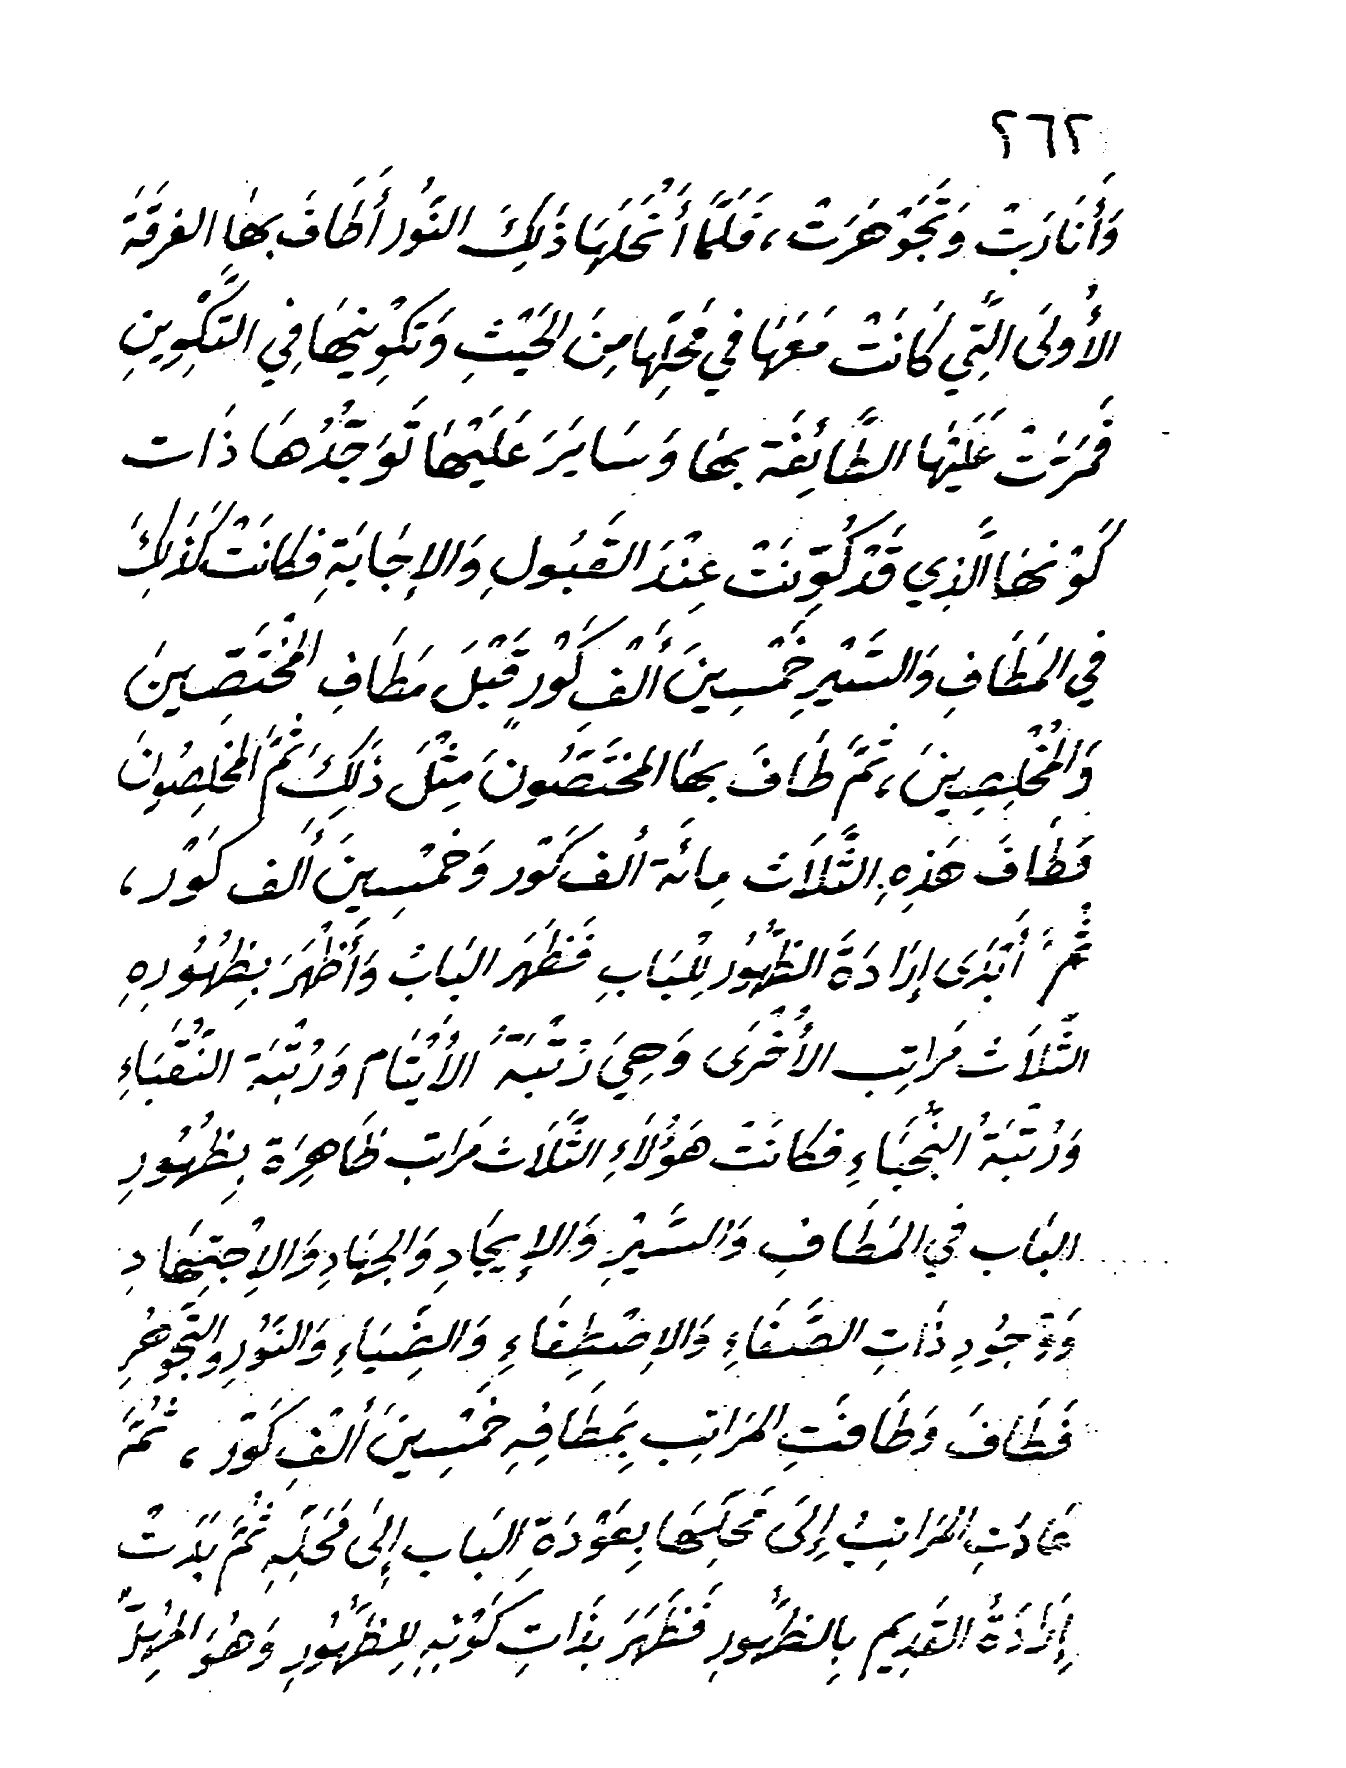 ٢٦٢
وَأَنَارَتْ وَتَجَوْهَرَتْ، فَلَمَّا أَنْحَلَهَا ذَلِكَ النُّورَ أَطَافَ بِهَا الفِرقَةَ
الأُولَى الَّتِي كَانَتْ مَعَهَا فِي مَحَلِّهَا مِنَ الحَيْثِ وَتَكْوِينِهَا فِي التَّكْوِينِ
فَمَرَّتْ عَلَيْهَا الطَّائِفَة بِهَا وَسَايَرَ عَلَيْهَا تَوَحُّدُهَا ذَات
كَوْنِهَا الَّذِي قَدْ كُوِّنَتْ عِنْدَ القَبُولِ وَالإِجَابَةِ فكانَتْ كَذَلِكَ
فِي المَطَافِ وَالسَّيْرِ خَمْسِينَ أَلْفِ كَوْرٍ قَبْلَ مَطَافِ المُخْتَصِّينَ
وَالمُخْلِصِينَ، ثُمَّ طَافَ بِهَا المُخْتَصُّونَ مِثْلَ ذَلِكَ ثُمَّ المُخلِصُونَ
فَطَافَ هَذِهِ الثَّلَاثَ مِائَة أَلف كَوْر وَخَمْسِينَ أَلف كَوْر،
ثُمَّ أَبْدَى إِرَادَةَ الظُّهُورِ لِلْبَابِ فَظَهَرَ البَابُ وَأَظْهَرَ بِظُهُورِهِ
الثَّلَاثَ مَرَاتِب الأُخْرَى وَهِيَ رُتْبَةُ الأَيْتَام وَرُتْبَة النُّقَبَاءِ
وَرُتْبَةُ النُّجَبَاءِ فكَانَتْ هَؤُلَاءِ الثَّلَاث مَرَاتب ظَاهِرَة بِظُهُورِ
البَاب فِي المَطَافِ وَالسَّيْرِ وَالإِيجَادِ وَالجِهَادِ وَالاِجْتِهَادِ
وَوُجُودِ ذَاتِ الصَّفَاءِ وَالاِصْطِفَاءِ وَالضِّيَاءِ وَالنُّورِ والتَّجَوْهُرِ
فَطَافَ وَطَافَتِ المَرَاتِب بِمَطَافِهِ خَمْسِينَ أَلْفِ كَوْر، ثُمَّ
عَادَتِ المَرَاتِبُ إِلَى مَحَلِّهَا بِعَوْدَةِ البَابِ إِلَى مَحَلِّهِ ثُمَّ بَدَتْ
إِرَادَةُ القَدِيمِ بِالظُّهُورِ فَظَهَرَ بِذَاتِ كَوْنِهِ لِلظُّهُورِ وَهُوَ